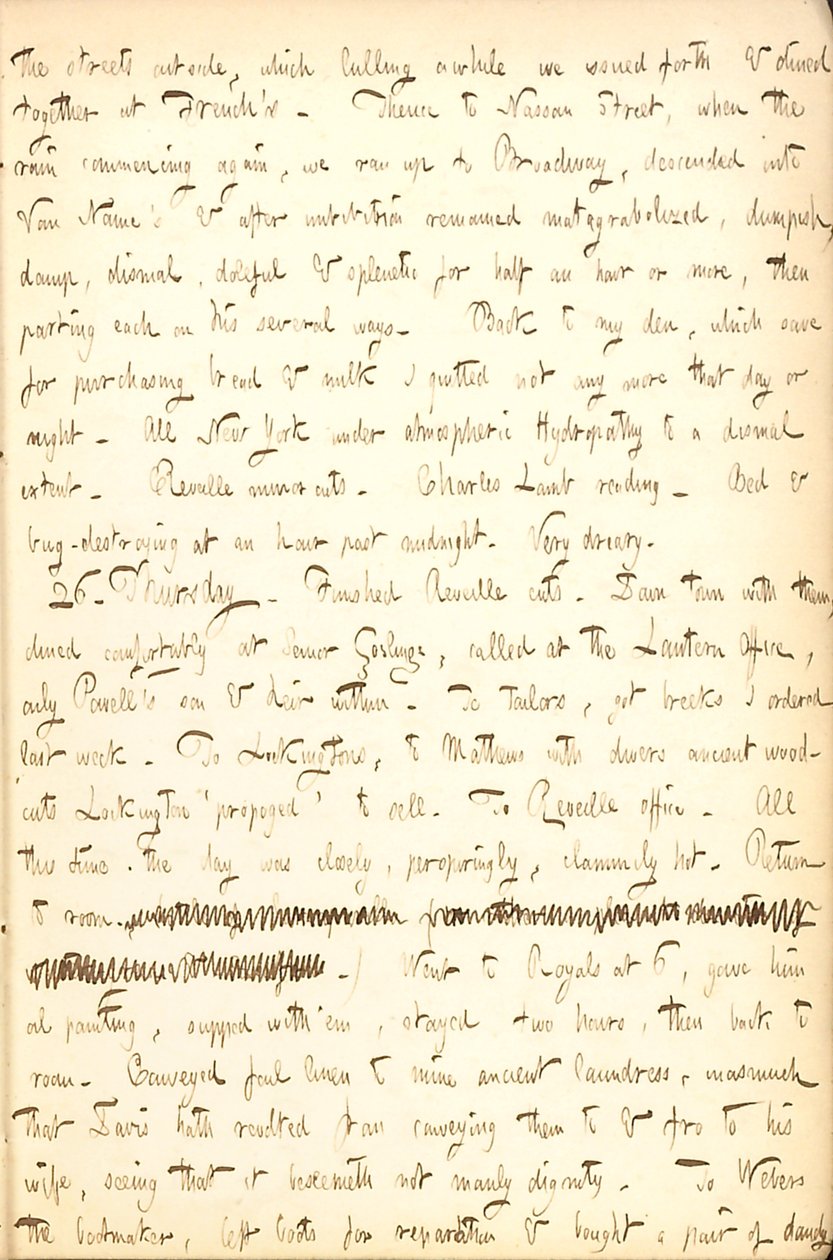 the streets outside, which lulling awhile we issued forth & dined
together at French's - Thence to Nassau Street, when the
rain commencing again, we ran up to Broadway, descended into
Van Name's & after imbibition remained matagrabolized, dumpish,
damp, dismal, doleful & splenetic for half an hour or more, then
parting each on his several ways - Back to my den, which save
for purchasing bread & milk I quitted not any more that day or
night - All New York under atmospheric Hydropathy to a dismal
extent - Reveille minor cuts - Charles Lamb reading - Bed &
bug-destroying at an hour past midnight. Very dreary.
26. Thursday - Finished Reveille cuts - Down town with them,
dined comfortably at Senior Goslings, called at the Lantern Office,
only Powell's son & heir within - To Tailors, got breeks I ordered
last week - To Lockingtons, to Mathews with divers ancient wood-
cuts Lockington 'propoged' to sell. To Reveille office - All
this time the day was closely, perspiringly, clammily hot - Return
to room.
-) Went to Royals at 6, gave him
oil painting, supped with 'em, stayed two hours, then back to
room - Conveyed foul linen to mine ancient laundress, inasmuch
that Davis hath revolted from conveying them to & fro to his
wife, seeing that it beseemeth not manly dignity - To Webers
the bootmaker, left boots for reparation & bought a pair of dandy